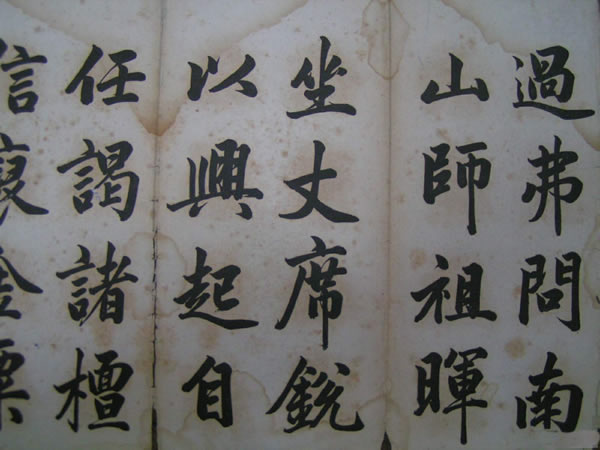 過弗問南
山師祖暉
坐丈席銳
以興起自
任謁諸檀
信裒金粟